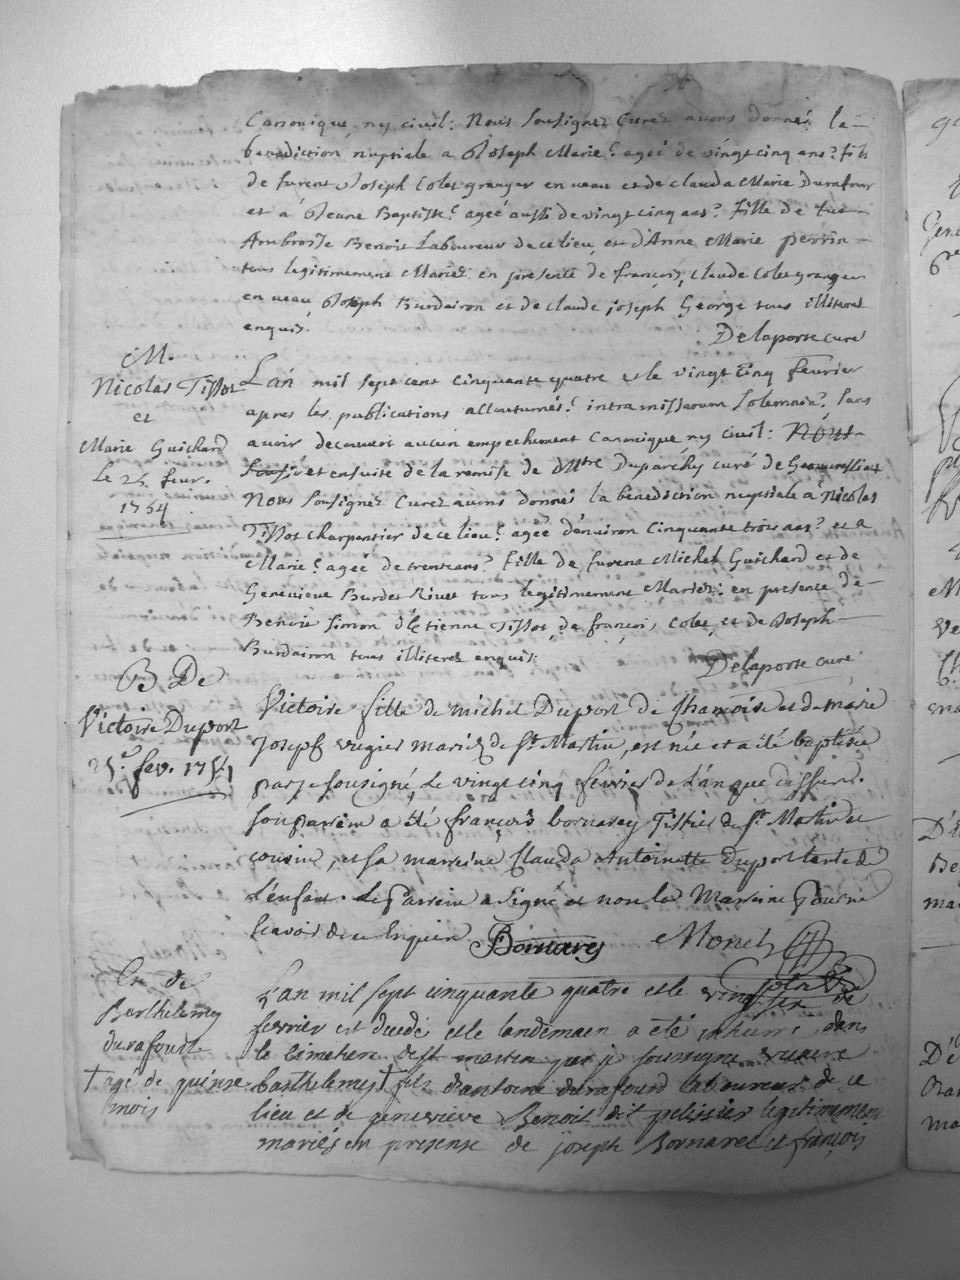 Canonique ny civil: Nous Soussignez Curez avons donnéz la
benediction nuptiale a Joseph Marie? ageé de vingt cinq ans? fils
de furent Joseph Colet granger en veau et de clauda Marie Durafour
et á Jeune Baptiste? ageé aussi de vingt cinq ans? fille de fut
Ambroise Benoit Laboureur de ce lieu et d'Anne Marie perrin
tous legitimement Mariéz en presence de françois, Claude Colet granger
en veau Joseph Burdairon et de claude joseph George tous illiterés
enquis.
Delaporte curé
M.
Nicolas Tissot
et
Marie Guichard
Le 25 fevr.
1754
Lan mil sept cent cinquante quatre et le vingt Cinq fevrier
apres les publications accoutumés? intra missarum Solemnia? Sans
avoir decouvert aucun empechement Canonique ny civil: Nous
Soussi et ensuite de la remise de Mtre Duparchy curé de
Nous Soussignez Curez avons donnés la benediction nuptiale a Nicolas
Tissot charpentier de ce lieu? agée d'environ Cinquante trois ans? et a
Marie? agée de trente ans? fille de furent Michel Guichard et de
Genevieve Burdet Rivet tous legitimement Mariéz: en presence de
Benoit Simon d'Etienne Tissot, de françois, Colet, et de Joseph
Burdairon tous illiterés enquis:
Delaporte curé
B De
Victoire Duport
25. fev. 1754
Victoire fille de michel Duport de et de marie
Joseph vugier mariéz de St Martin, est née et a été baptisée
par je soussigné, Le vingt cinq fevrier de L'an que dissus.
son parrein a été françois bornarey Tissier de St Martin et
cousin, et sa marreine Clauda Antoinette duport tante de
L'enfant. Le Parrein a signé et non la Marreine Pour ne
scavoir de ce Enquise Bornarey Monet
En de
Barthelemy
durafourt
† agé de quinse
mois
L'an mil sept cinquante quatre et le vingt six de
fevrier est dicede et le landemain a eté inhumé dans
le cimetiere de st martin par je soussigne vicaire
barthelemy † fils d'antoine durafourd laboureur de ce
lieu et de genevieve Benoit dit pelissier legitimement
mariés en presense de joseph Bornarel et françois